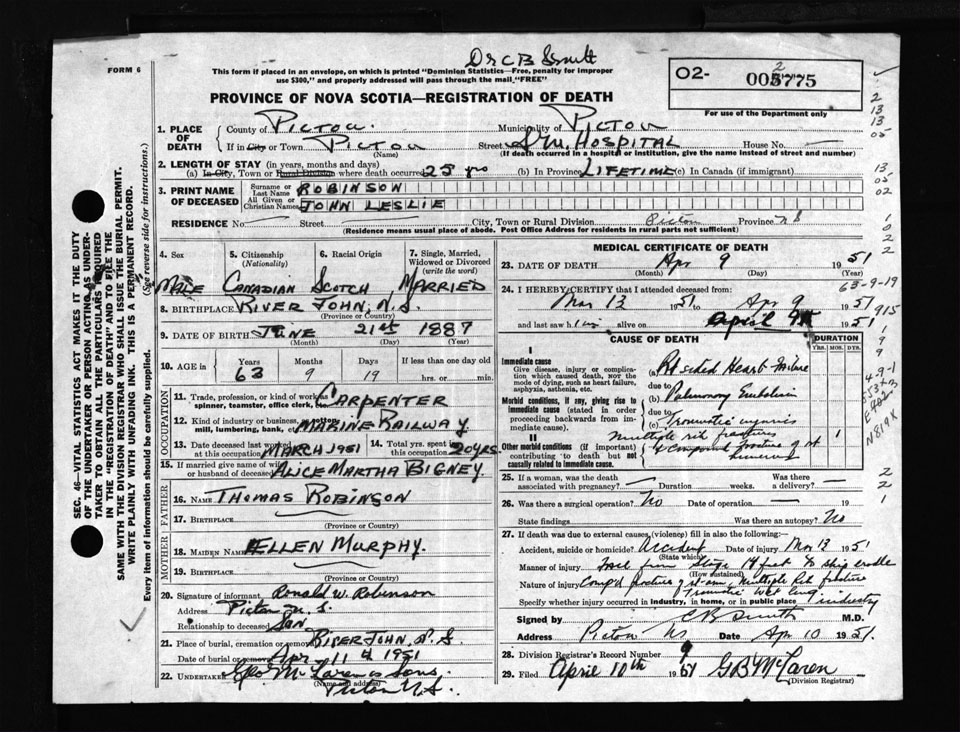 Dr C B Smith
FORM 6
This form if placed in an envelope, on which is printed "Dominion Statistics—Free, penalty for improper
use $300," and properly addressed will pass through the mail, "FREE"
O2-
2
005775
For use of the Department only
PROVINCE OF NOVA SCOTIA—REGISTRATION OF DEATH
1. PLACE OF DEATH { County of PICTOU. Municipality of PICTOU
If in City or Town PICTOU (Name) Street S.M. HOSPITAL House No. —
(If death occurred in a hospital or institution, give the name instead of street and number)
2. LENGTH OF STAY (in years, months and days)
(a) In City, Town or Rural Division where death occurred 25 yrs (b) In Province LIFETIME (c) In Canada (if immigrant)
3. PRINT NAME OF DECEASED { Surname or Last Name ROBINSON
All Given or Christian Names JOHN LESLIE
RESIDENCE No. Street City, Town or Rural Division Pictou Province N S
(Residence means usual place of abode. Post Office Address for residents in rural parts not sufficient)
4. Sex
MALE
5. Citizenship (Nationality)
CANADIAN
6. Racial Origin
SCOTCH
7. Single, Married, Widowed or Divorced (write the word)
MARRIED
8. BIRTHPLACE RIVER JOHN, N.S.
(Province or Country)
9. DATE OF BIRTH JUNE 21st 1887
(Month) (Day) (Year)
10. AGE in { Years 63 Months 9 Days 19 If less than one day old
hrs. or min.
OCCUPATION
11. Trade, profession, or kind of work as spinner, teamster, office clerk, CARPENTER
12. Kind of industry or business, as cotton mill, lumbering, bank, MARINE RAILWAY
13. Date deceased last worked at this occupation MARCH 1951
14. Total yrs. spent in this occupation 20 yrs.
15. If married give name of wife or husband of deceased ALICE MARTHA BIGNEY
FATHER
16. NAME THOMAS ROBINSON
17. BIRTHPLACE
(Province or Country)
MOTHER
18. MAIDEN NAME ELLEN MURPHY.
19. BIRTHPLACE
(Province or Country)
20. Signature of informant Ronald W. Robinson
Address Pictou N. S.
Relationship to deceased Son
21. Place of burial, cremation or removal RIVER JOHN, N. S
Date of burial or removal Apr 11th 1951
22. UNDERTAKER Geo McLaren & Sons.
(Name and address)
Pictou N.S.
MEDICAL CERTIFICATE OF DEATH
23. DATE OF DEATH Apr 9 1951
(Month) (Day) (Year)
24. I HEREBY CERTIFY that I attended deceased from:
Mar 13 1951 to Apr 9 1951
and last saw him alive on April 9th 1951
CAUSE OF DEATH
DURATION
YRS. MOS. DYS.
I
Immediate cause
Give disease, injury or complication which caused death, NOT the mode of dying, such as heart failure, asphyxia, asthenia, etc.
(a) Rt sided Heart Failure
due to
Morbid conditions, if any, giving rise to immediate cause (stated in order proceeding backwards from immediate cause).
(b) Pulmonary Embolism
due to
(c) Traumatic injuries
II
Other morbid conditions (if important) contributing to death but not causally related to immediate cause.
Multiple rib fractures
& Compound fracture of rt
humerus
1
25. If a woman, was the death associated with pregnancy? — Duration weeks. Was there a delivery? —
26. Was there a surgical operation? No Date of operation — 19
State findings Was there an autopsy? No
27. If death was due to external causes, (violence) fill in also the following:—
Accident, suicide or homicide? Accident Date of injury Mar 13 1951
(State which)
Manner of injury Fall from Stage 14 feet to ship cradle
(How sustained)
Nature of injury Comp'd fracture rt arm, Multiple Rib fracture
Traumatic Wet lung
Specify whether injury occurred in industry, in home, or in public place Industry
Signed by C B Smith M.D.
Address Pictou NS Date Apr 10 1951.
28. Division Registrar's Record Number 9
29. Filed April 10th 1951 G B McLaren
(Division Registrar)
SEC. 46—VITAL STATISTICS ACT MAKES IT THE DUTY
OF THE UNDERTAKER OR PERSON ACTING AS UNDER-
TAKER TO OBTAIN ALL THE PARTICULARS REQUIRED
IN THE "REGISTRATION OF DEATH" AND TO FILE THE
SAME WITH THE DIVISION REGISTRAR WHO SHALL ISSUE THE BURIAL PERMIT.
WRITE PLAINLY WITH UNFADING INK. THIS IS A PERMANENT RECORD.
Every item of information should be carefully supplied. (See reverse side for instructions.)
2
13
13
05
13
05
02
1
0
2
2
63-9-19
915
1
9
9
4-9-1
E902
N819X
2
2
1